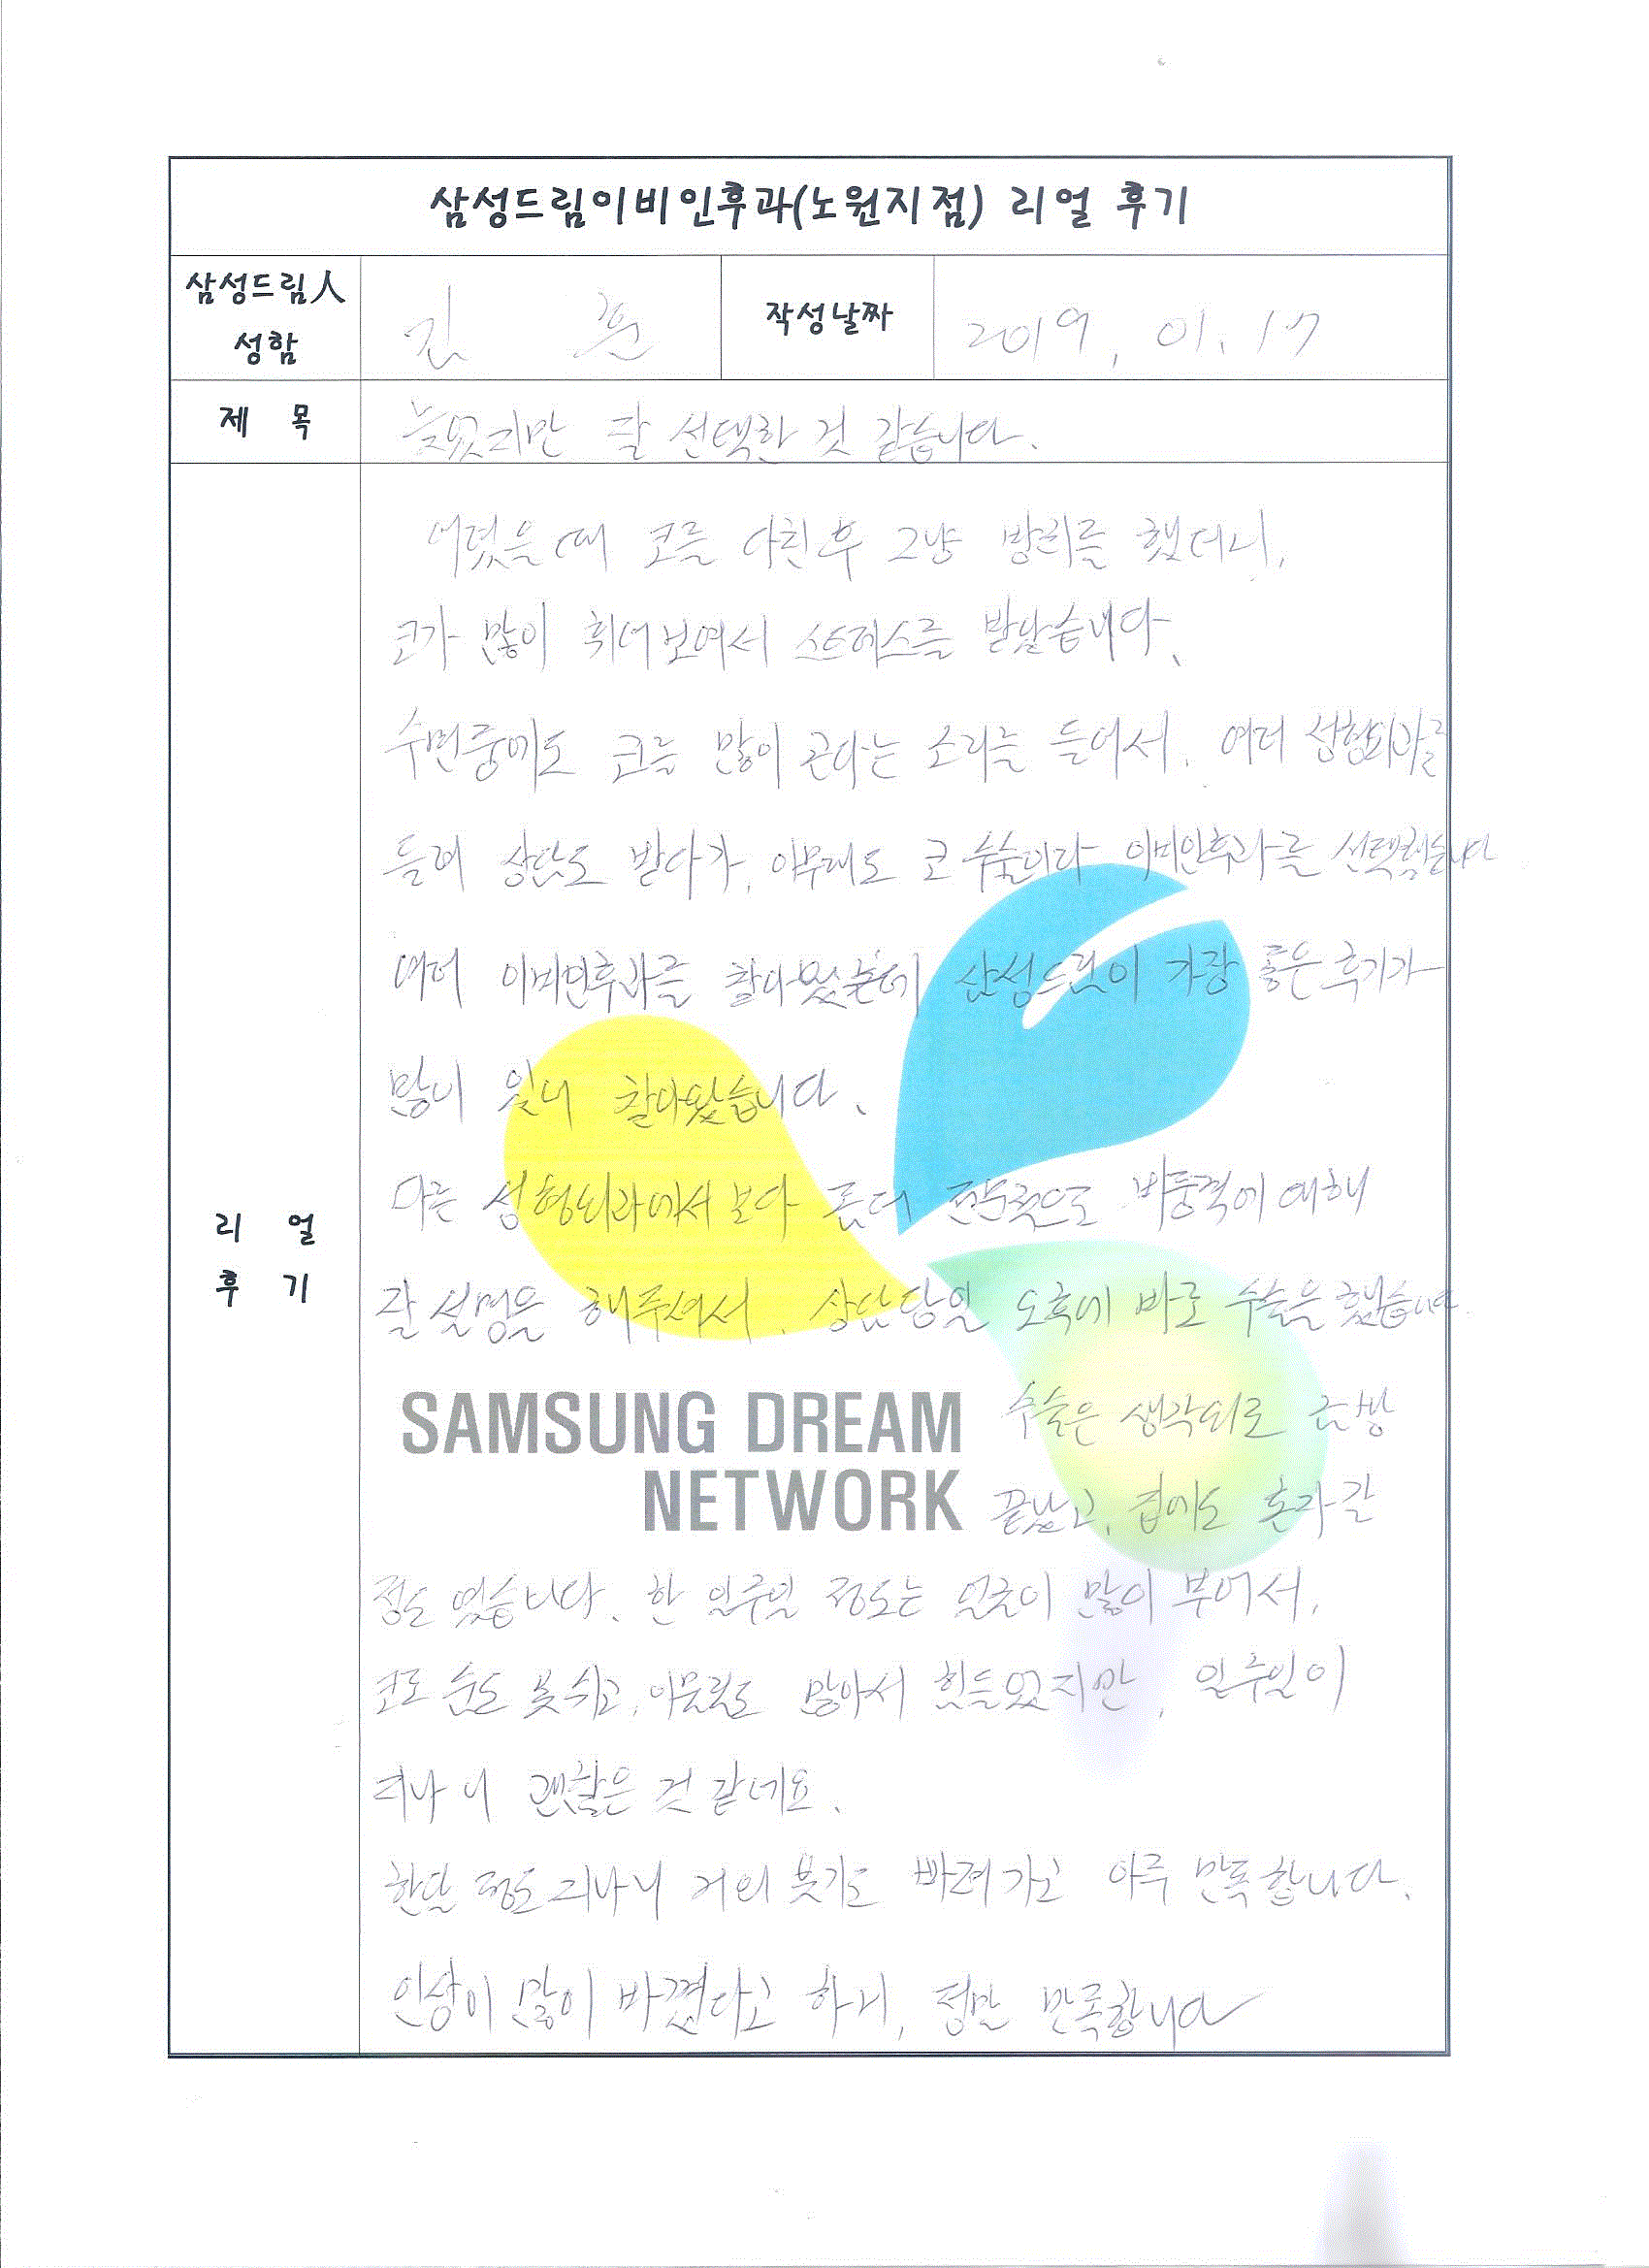 삼성드림이비인후과(노원지점) 리얼 후기
삼성드림人
성함
김 훈
작성날짜
2019. 01. 17
제 목
늦었지만 잘 선택한 것 같습니다.
리 얼
후 기
어렸을 때 코를 다친 후 그냥 방치를 했더니,
코가 많이 휘어보여서 스트레스를 받았습니다.
수면중에도 코를 많이 곤다는 소리를 들어서, 여러 성형외과를
들려 상담도 받다가, 아무래도 코 수술이라 이비인후과를 선택했습니다
여러 이비인후과를 찾아봤는데 삼성드림이 가장 좋은 후기가
많이 있어 찾아왔습니다.
다른 성형외과에서 보다 좀더 전문적으로 비중격에 대해
잘 설명을 해주셔서, 상담당일 오후에 바로 수술을 했습니다.
SAMSUNG DREAM
NETWORK
수술은 생각외로 금방
끝났고, 집에도 혼자 갈
정도 였습니다. 한 일주일 정도는 얼굴이 많이 부어서,
코로 숨도 못 쉬고, 이물감도 많아서 힘들었지만, 일주일이
지나 니 괜찮은 것 같네요.
한달 정도 지나니 거의 붓기도 빠져가고 아주 만족합니다.
인상이 많이 바꼈다고 하니, 정말 만족합니다